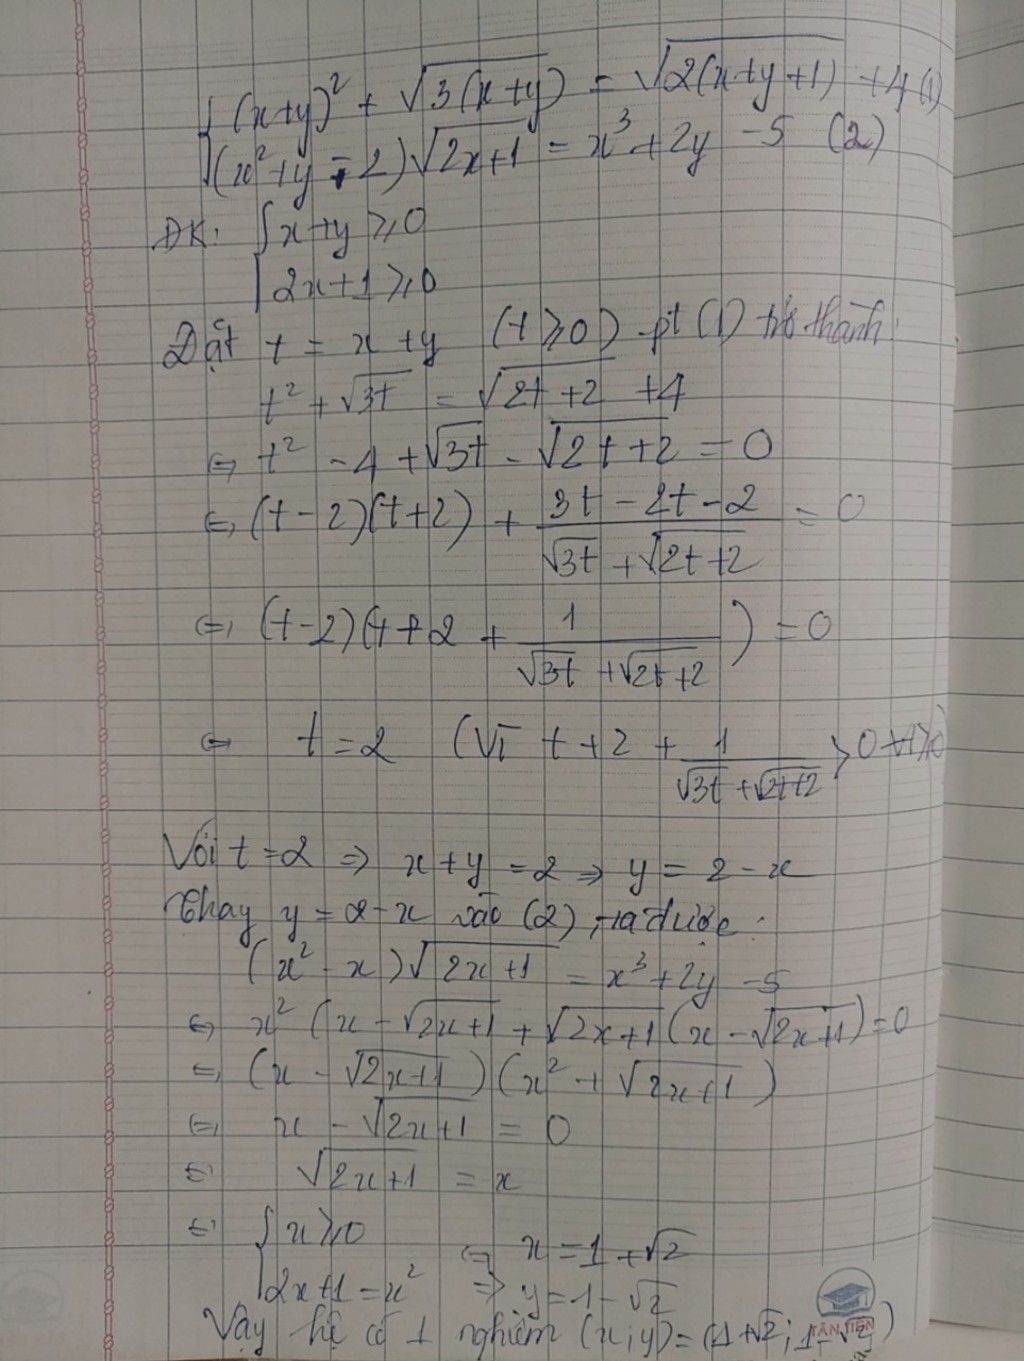 { (x+y)² + √3(x+y) = √2(x+y+1) + 4 (1)
(x²+y-2)√2x+1 = x³+2y-5 (2)
ĐK: { x+y ⩾ 0
2x+1 ⩾ 0
Đặt t = x+y (t ⩾ 0) pt (1) trở thành:
t² + √3t = √2t+2 + 4
⇔ t² - 4 + √3t - √2t+2 = 0
⇔ (t-2)(t+2) + (3t-2t-2)/(√3t + √2t+2) = 0
⇔ (t-2)(t+2 + 1/(√3t + √2t+2)) = 0
⇔ t = 2 (Vì t+2 + 1/(√3t + √2t+2) > 0 ∀t⩾0)
Với t=2 ⇒ x+y = 2 ⇒ y = 2-x
Thay y = 2-x vào (2), ta được:
(x²-x)√2x+1 = x³+2y-5
⇔ x²(x-√2x+1 + √2x+1(x-√2x+1) = 0
⇔ (x-√2x+1)(x²+√2x+1)
⇔ x - √2x+1 = 0
⇔ √2x+1 = x
⇔ { x ⩾ 0
2x+1 = x² ⇔ x = 1+√2
⇒ y = 1-√2
Vậy hệ có 1 nghiệm (x;y) = (1+√2; 1-√2)
TÂN TIẾN